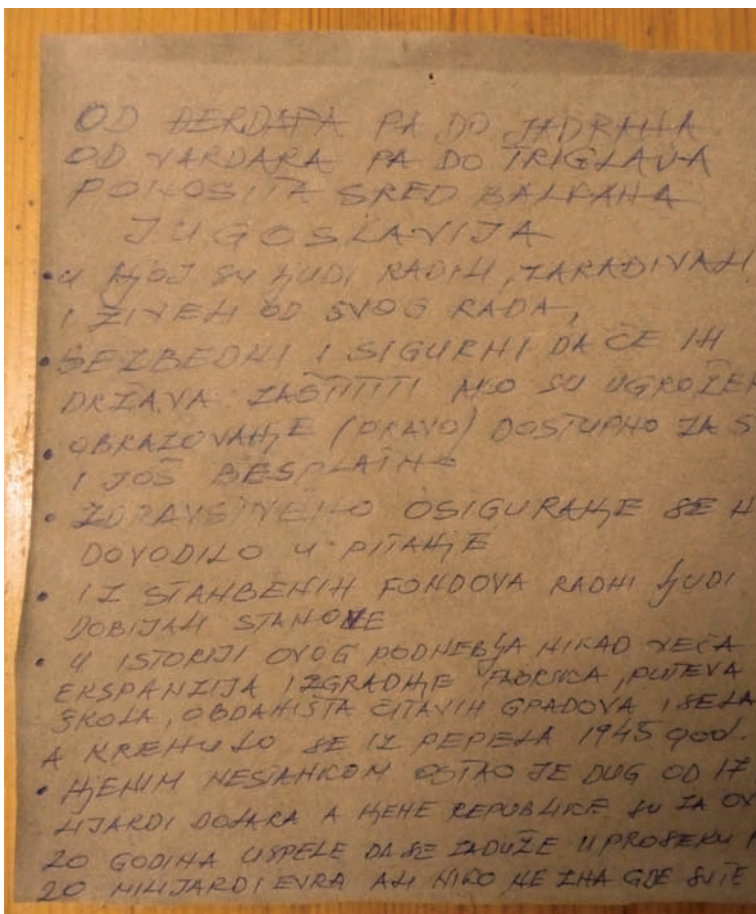 OD ĐERDAPA PA DO JADRANA
OD VARDARA PA DO TRIGLAVA
PONOSITA SRED BALKANA
JUGOSLAVIJA
• U NJOJ SU LJUDI RADILI, ZARAĐIVALI
I ŽIVELI OD SVOG RADA,
• BEZBEDNI I SIGURNI DA ĆE IH
DRŽAVA ZAŠTITITI AKO SU UGROŽEN
• OBRAZOVANJE (PRAVO) DOSTUPNO ZA S
I JOŠ BESPLATNO
• ZDRAVSTVENO OSIGURANJE SE N
DOVODILO U PITANJE
• IZ STANBENIH FONDOVA RADNI LJUDI
DOBIJALI STANOVE
• U ISTORIJI OVOG PODNEBLJA NIKAD VEĆA
EKSPANZIJA IZGRADNJE FABRIKA, PUTEVA
ŠKOLA, OBDANIŠTA ČITAVIH GRADOVA I SELA
A KRENULO SE IZ PEPELA 1945 god.
• NJENIM NESTANKOM OSTAO JE DUG OD 17
LIJARDI DOLARA A NJENE REPUBLIKE SU ZA OV
20 GODINA USPELE DA SE ZADUŽE U PROSEKU P
20 MILIJARDI EVRA ALI NIKO NE ZNA GDE SU TE